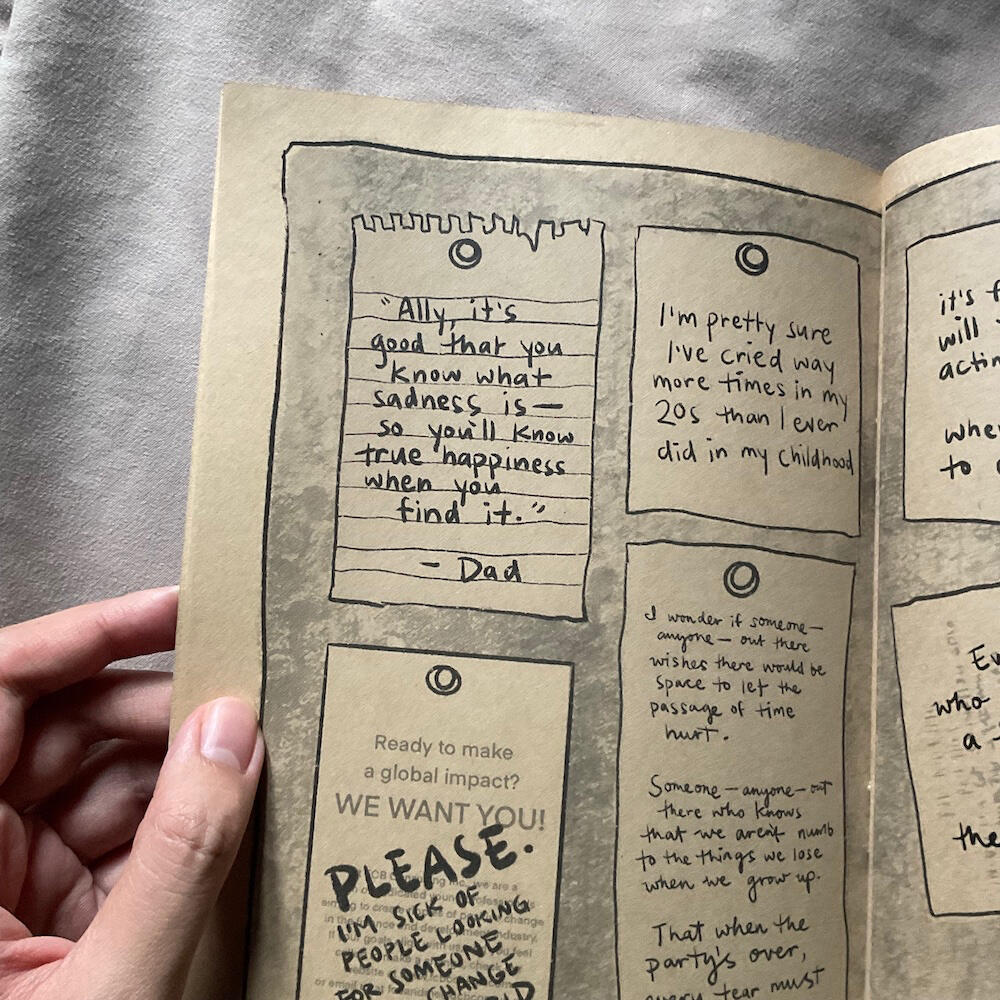 "Ally, it's
good that you
know what
sadness is—
so you'll know
true happiness
when you
find it."
- Dad
I'm pretty sure
I've cried way
more times in my
20s than I ever
did in my childhood
Ready to make
a global impact?
WE WANT YOU!
PLEASE.
I'M SICK OF
PEOPLE LOOKING
FOR SOMEONE
CHANGE
I wonder if someone—
anyone— out there
wishes there would be
space to let the
passage of time
hurt.
Someone—anyone—out
there who knows
that we aren't numb
to the things we lose
when we grow up.
That when the
party's over,
every tear must
it's
will
when
to
who
a
the